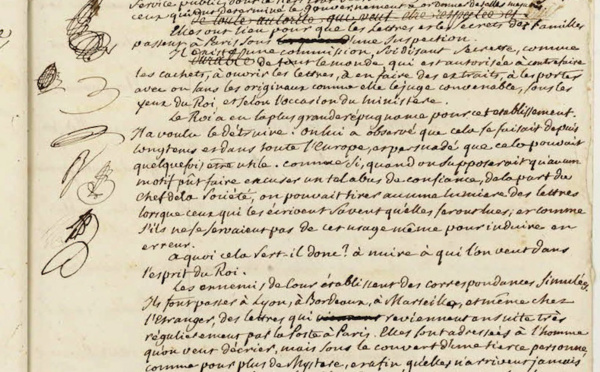 Service public, pour
ceux qui ont déterminé le gouvernement à
de toute autorité qui veut être respectée et
Elles ont lieu pour que les Lettres et les Secrets des familles
passent à Paris sous d'une Inspection.
Il existe une commission, soi disant Secrette, connue
de tout le monde qui est autorisée à contrefaire
les cachets, à ouvrir les lettres, à en faire des extraits, à les porter
avec ou sans les originaux comme elle le juge convenable, sous les
yeux du Roi, et selon l'occasion du ministère.
Le Roi a eu la plus grande répugnance pour cet etablissement.
Il a voulu le détruire. on lui a observé que cela se faisait depuis
longtems et dans toute l'Europe, et persuadé que cela pouvait
quelquefois etre utile. comme si, quand on supposerait qu'aucun
motif pût faire excuser un tel abus de confiance, de la part du
Chef de la Société, on pouvait tirer aucune lumiere des lettres
lorsque ceux qui les écrivent savent qu'elles seront lues; et comme
s'ils ne se servaient pas de cet usage même pour induire en
erreur.
a quoi cela sert-il donc? à nuire à qui l'on veut dans
l'esprit du Roi.
Les ennemis de Cour établissent des correspondances Simulées
Ils font passer à Lyon, à Bordeaux, à Marseille, et même chez
l'Etranger, des lettres qui reviennent ensuite très
régulièrement par la Poste à Paris. Elles sont adressées à l'homme
qu'on veut décrier, mais sous le couvert d'une tierce personne
comme pour plus de Mystere, et afin qu'elles n'arrivent jamais